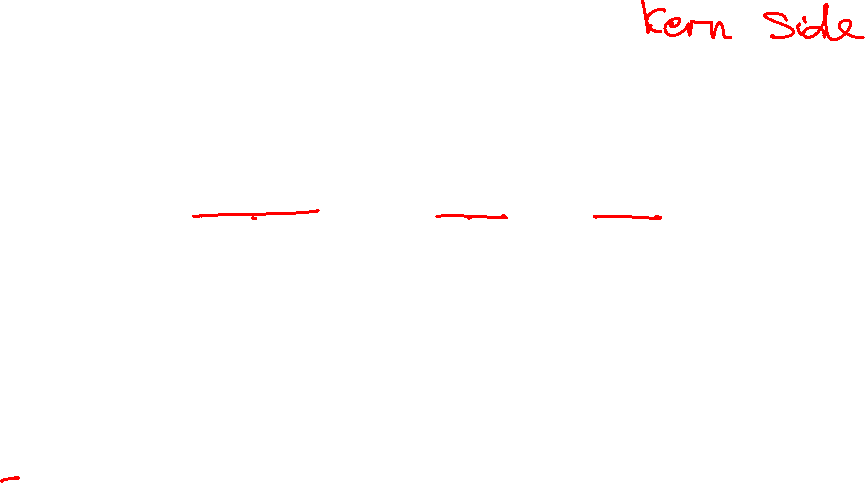 kern side